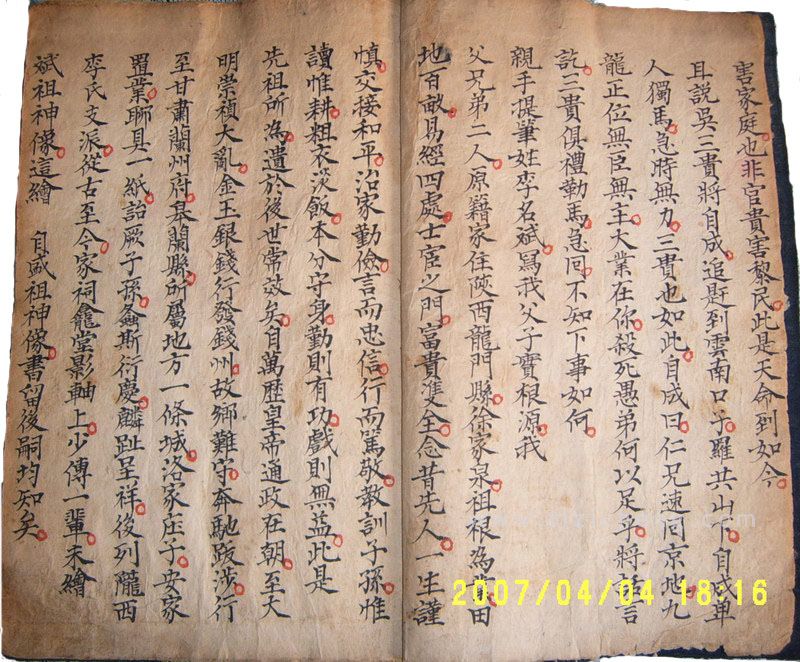 害家庭也非官貴害黎民此是天命到如今
耳説吳三貴將自成追赶到雲南口子羅共山下自成单
人獨馬急時無力三貴也如此自成曰仁兄速回京地九
龍正位無臣無主大業在你殺死愚弟何以足乎將言
訖三貴俱禮勒馬急回不知下事如何
親手提筆姓李名斌寫我父子實根源我
父兄弟二人原籍家住陝西龍門縣徐家泉祖根為田
地百畝易經四處士宦之門富貴雙全念昔先人一生謹
慎交接和平治家勤儉言而忠信行而篤敬教訓子孫惟
讀惟耕粗衣淡飯本分守身勤則有功戲則無益此是
先祖所為遺於後世常效矣自萬歷皇帝通政在朝至大
明崇禎大亂金玉銀錢行發錢州故鄉難守奔馳跋涉行
至甘肅蘭州府皋蘭縣所屬地方一條城洛家庄子安家
置業聊具一紙詒厥子孫螽斯衍慶麟趾呈祥後列隴西
李氏支派從古至今家祠龕堂影軸上少傳一輩未繪
斌祖神像這繪 自盛祖神像書留後嗣均知矣
2007/04/04 18:16